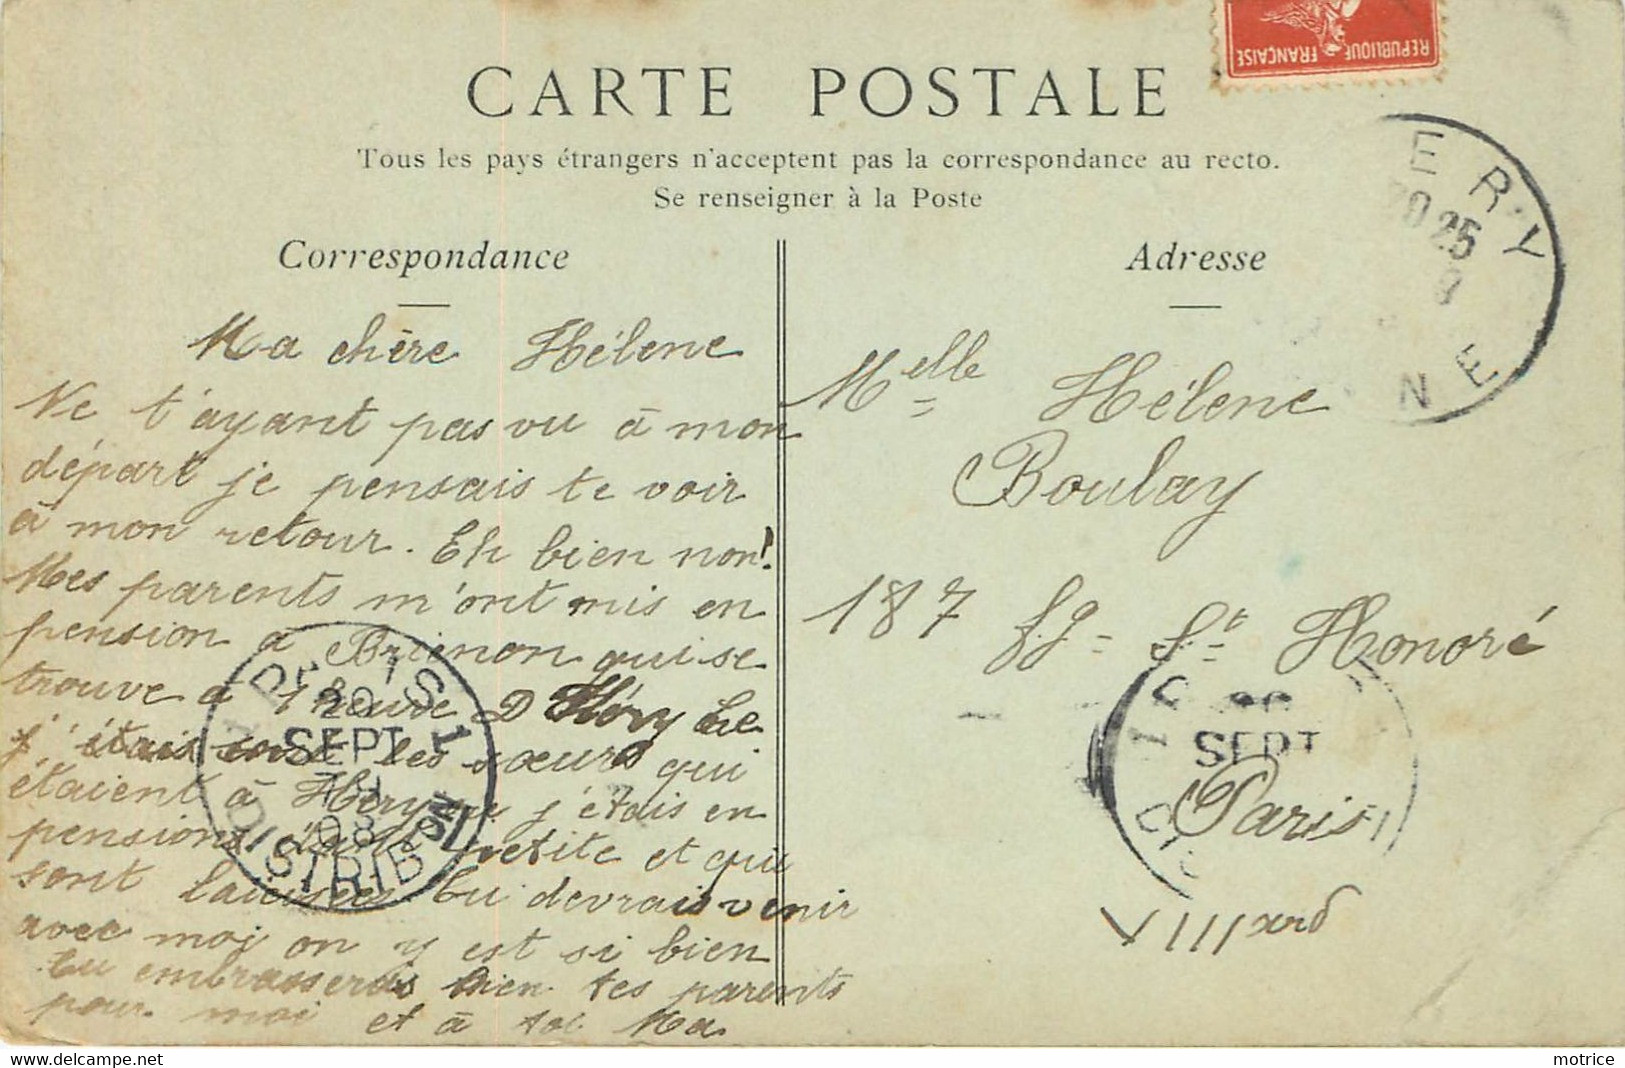 CARTE POSTALE
Tous les pays étrangers n'acceptent pas la correspondance au recto.
Se renseigner à la Poste
Correspondance
Ma chère Hélène
Ne t'ayant pas vu à mon
départ je pensais te voir
à mon retour. Eh bien non!
Mes parents m'ont mis en
pension à Brienon qui se
trouve à 1 heure D Héry
j'étais les sœurs qui
étaient à Héry j'étais en
pension petite et qui
sont laïcisées tu devrais venir
avec moi on y est si bien
tu embrasseras bien tes parents
pour moi et à toi Ma
Adresse
Melle Hélène
Boulay
187 fg St Honoré
Paris
VIII ard
REPUBLIQUE FRANÇAISE
ERY
20 25
NE
PARIS 1
SEPT
08
DISTRIBUTION
SEPT
delcampe.net
matrice